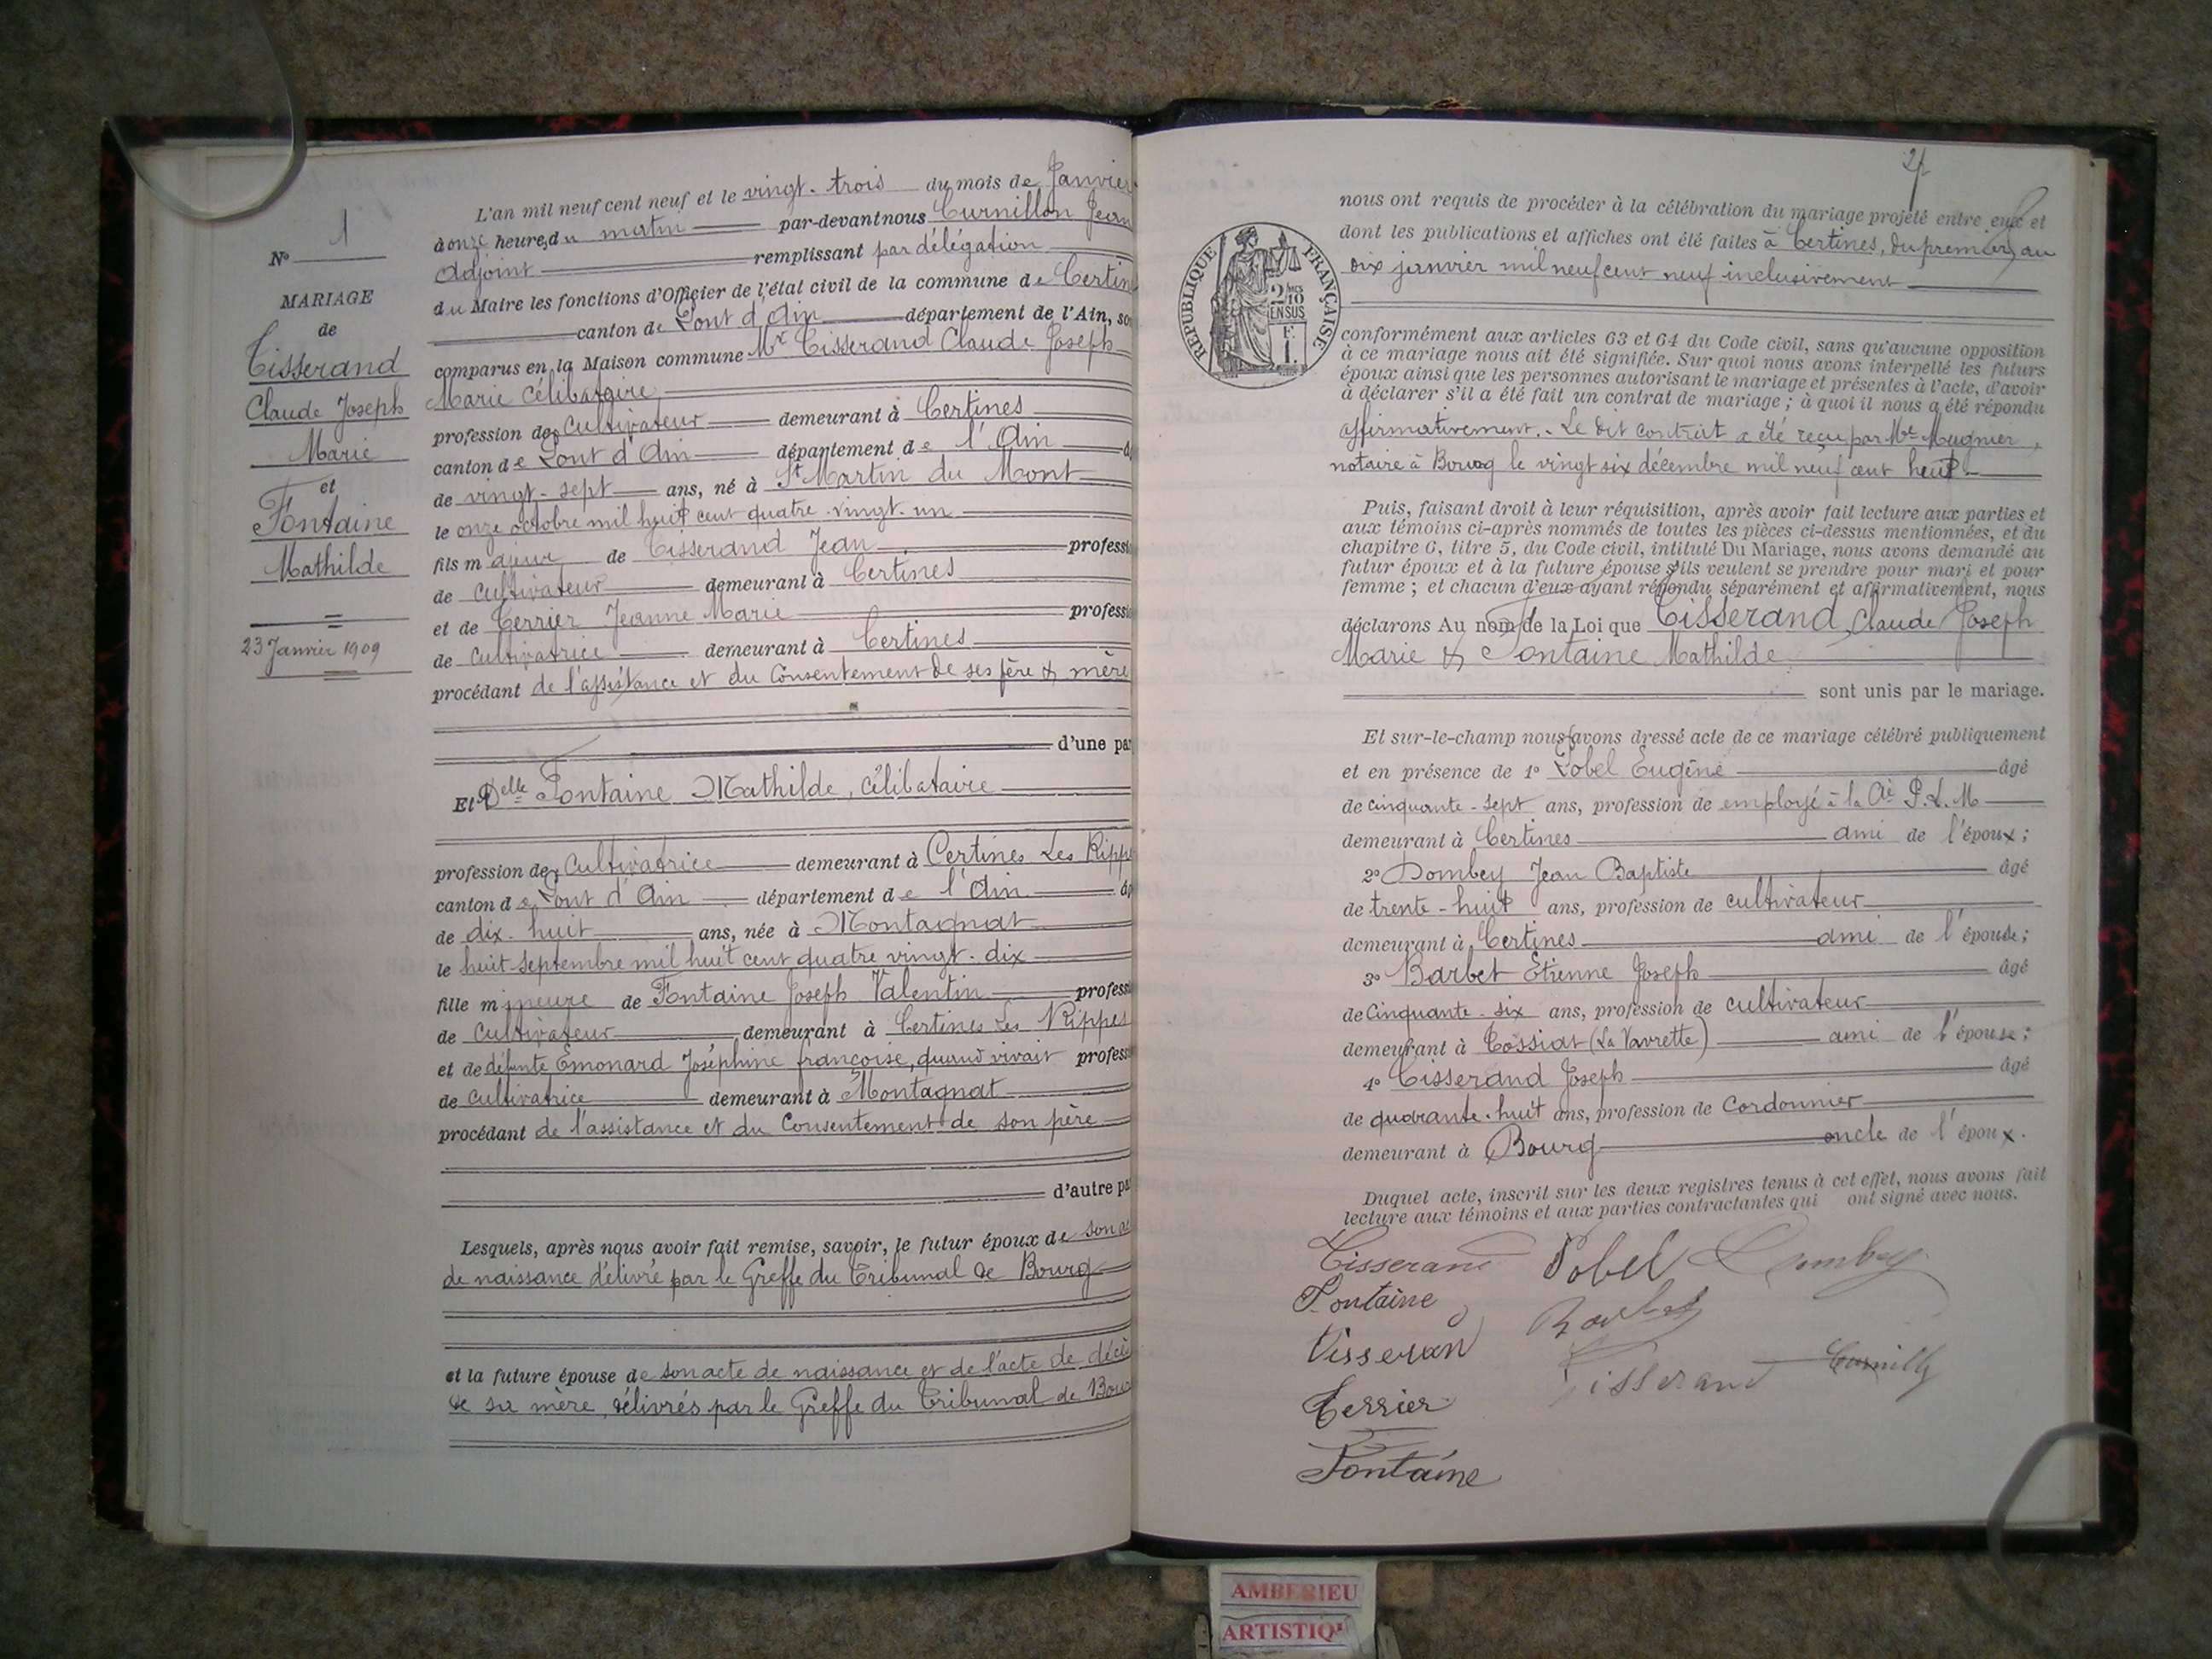 N° 1
MARIAGE
de
Tisserand
Claude Joseph
Marie
et
Fontaine
Mathilde
23 Janvier 1909
L'an mil neuf cent neuf et le vingt-trois du mois de Janvier
à onze heures du matin par-devant nous Curnillon Jean
Adjoint remplissant par délégation
du Maire les fonctions d'Officier de l'état civil de la commune de Certin
canton de Pont d'Ain département de l'Ain, so
comparus en la Maison commune Mr Tisserand Claude Joseph
Marie Célibataire
profession de Cultivateur demeurant à Certines
canton de Pont d'Ain département de l'Ain
de vingt-sept ans, né à St Martin du Mont
le onze octobre mil huit cent quatre-vingt-un
fils majeur de Tisserand Jean professi
de Cultivateur demeurant à Certines
et de Terrier Jeanne Marie professi
de Cultivatrice demeurant à Certines
procédant de l'assistance et du Consentement de ses père & mère
d'une par
Et Delle Fontaine Mathilde, Célibataire
profession de Cultivatrice demeurant à Certines Les Ripp
canton de Pont d'Ain département de l'Ain
de dix-huit ans, née à Montagnat
le huit septembre mil huit cent quatre vingt-dix
fille mineure de Fontaine Joseph Valentin profess
de Cultivateur demeurant à Certines Les Rippes
et de défunte Emonard Joséphine françoise, quand vivait profess
de Cultivatrice demeurant à Montagnat
procédant de l'assistance et du Consentement de son père
d'autre pa
Lesquels, après nous avoir fait remise, savoir, le futur époux de son a
de naissance délivré par le Greffe du Tribunal de Bourg
et la future épouse de son acte de naissance et de l'acte de décè
de sa mère, délivrés par le Greffe du Tribunal de Bou
2
RÉPUBLIQUE FRANÇAISE
2/10
EN SUS
F.
1.
nous ont requis de procéder à la célébration du mariage projeté entre eux et
dont les publications et affiches ont été faites à Certines, du premier au
dix janvier mil neuf cent neuf inclusivement
conformément aux articles 63 et 64 du Code civil, sans qu'aucune opposition
à ce mariage nous ait été signifiée. Sur quoi nous avons interpellé les futurs
époux ainsi que les personnes autorisant le mariage et présentes à l'acte, d'avoir
à déclarer s'il a été fait un contrat de mariage ; à quoi il nous a été répondu
affirmativement. - Le dit contrat a été reçu par Me Mugnier,
notaire à Bourg le vingt six décembre mil neuf cent huit
Puis, faisant droit à leur réquisition, après avoir fait lecture aux parties et
aux témoins ci-après nommés de toutes les pièces ci-dessus mentionnées, et du
chapitre 6, titre 5, du Code civil, intitulé Du Mariage, nous avons demandé au
futur époux et à la future épouse s'ils veulent se prendre pour mari et pour
femme ; et chacun d'eux ayant répondu séparément et affirmativement, nous
déclarons Au nom de la Loi que Tisserand, Claude Joseph
Marie & Fontaine Mathilde
sont unis par le mariage.
Et sur-le-champ nous avons dressé acte de ce mariage célébré publiquement
et en présence de 1° Pobel Eugène âgé
de cinquante-sept ans, profession de employé à la Cie P.L.M
demeurant à Certines ami de l'époux ;
2° Dombey Jean Baptiste âgé
de trente-huit ans, profession de cultivateur
demeurant à Certines ami de l'épouse ;
3° Barbet Etienne Joseph âgé
de Cinquante-six ans, profession de cultivateur
demeurant à Tossiat (La Vavrette) ami de l'épouse ;
4° Tisserand Joseph âgé
de quarante-huit ans, profession de Cordonnier
demeurant à Bourg oncle de l'époux.
Duquel acte, inscrit sur les deux registres tenus à cet effet, nous avons fait
lecture aux témoins et aux parties contractantes qui ont signé avec nous.
Tisserand Pobel Dombey
Fontaine Barbet
Tisserand Tisserand
Terrier
Fontaine
AMBERIEU
ARTISTIQ